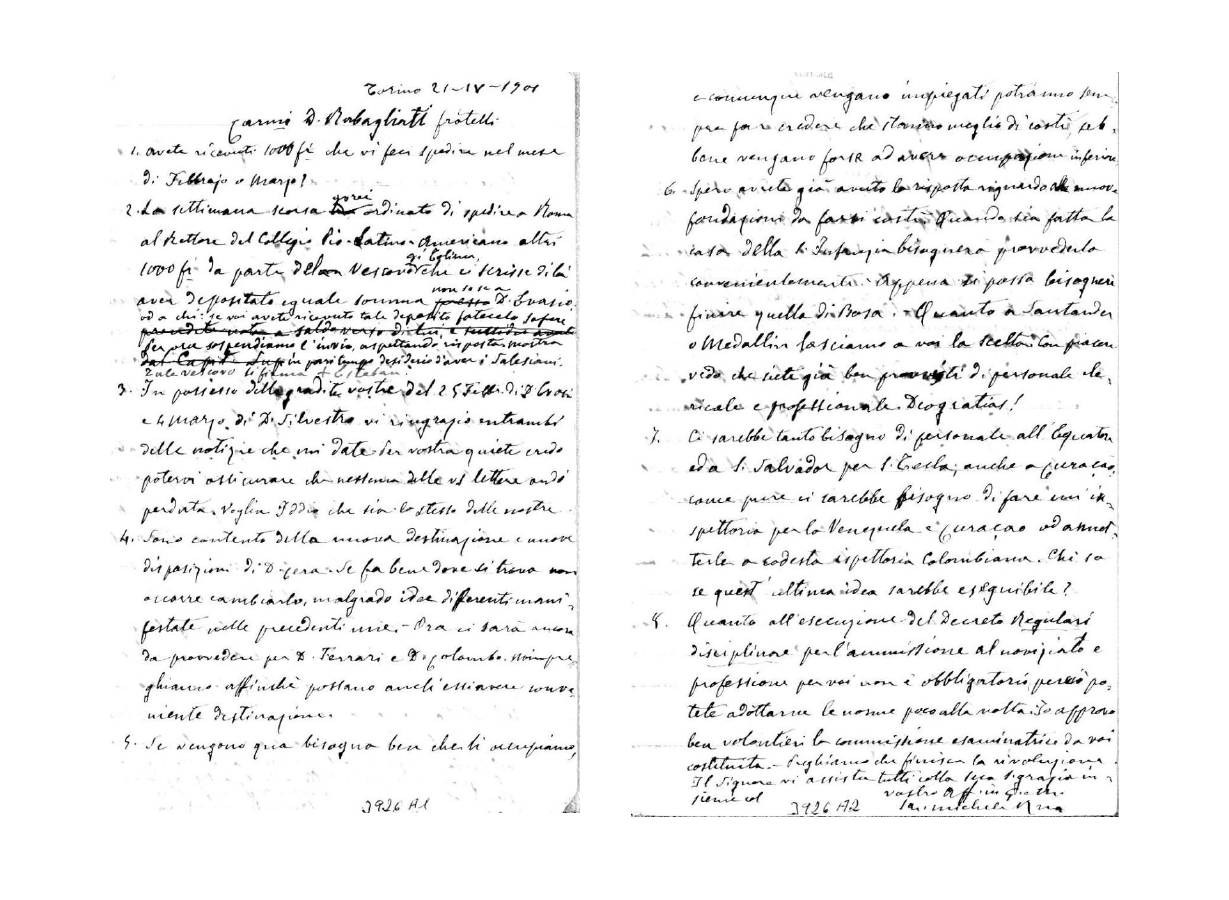 Torino 21-IV-1901
Carmi D. Rabagliati fratelli
1. Avete ricevuti 1000 fr che vi feci spedire nel mese
di Febbrajo o Marzo?
2. La settimana scorsa avrei ordinato di spedire a Roma
al Rettore del Collegio Pio-Latino-Americano altri
1000 fr da parte del Vescovo che ci scrisse di là
aver depositato eguale somma non so se a D. Evasio
od a chi: se voi avete ricevuto tale deposito fatecelo sapere
Per ora sospendiamo l'invio, aspettando risposta mostra
in pari tempo desiderio d'aver i Salesiani.
tale vescovo si firma + Esteban
3. In possesso delle gradite vostre del 25 Febb. di D. Crosi
e 4 Marzo di D. Silvestro vi ringrazio entrambi
delle notizie che mi date. Per vostra quiete credo
potervi assicurare che nessuna delle vs lettere andò
perduta. Voglia Iddio che sia lo stesso delle nostre.
4. Sono contento della nuova destinazione e nuove
disposizioni di D. Se fa bene dove si trova non
occorre cambiarlo, malgrado idee differenti mani-
festate nelle precedenti mie. - Ora ci sarà ancora
da provvedere per D. Ferrari e D. Colombo.
affinchè possano anch'essi avere conve-
niente destinazione.
5. Se vengono qua bisogna ben che li occupiamo,
3926 A1
e comunque vengano impiegati potranno sem-
pre far credere che stavano meglio di costì seb-
bene vengano forse ad avere occupazione inferiore
6. Spero avrete già avuto la risposta riguardo alle nuove
fondazioni da farsi costì. Quando sia fatta la
casa della S. Infanzia bisognerà provvederla
convenientemente. Appena si possa bisognerà
finire quella di Bosa. - Quanto a Santander
o Medallin lasciamo a voi la scelta. Con piacere
vedo che siete già ben provvisti di personale cle-
ricale e professionale. Deogratias!
7. Ci sarebbe tanto bisogno di personale all'Equatore
ed a S. Salvador per S. Tecla; anche a Curaçao,
come pure ci sarebbe bisogno di fare un'is-
pettoria per la Venezuela e Curaçao od annet-
terle a codesta ispettoria Colombiana. Chi sa
se quest'ultima idea sarebbe eseguibile?
8. Quanto all'esecuzione del Decreto Regulari
disciplinae per l'ammissione al noviziato e
professione per voi non è obbligatorio, però po-
tete adottarne le norme poco alla volta. Io approvo
ben volontieri la commissione esaminatrice da voi
costituita. - Preghiamo che finisca la rivoluzione.
Il Signore vi assista tutti colla sua S. grazia in-
sieme col
vostro aff in G. e M.
Sac. Michele Rua
3926 A2